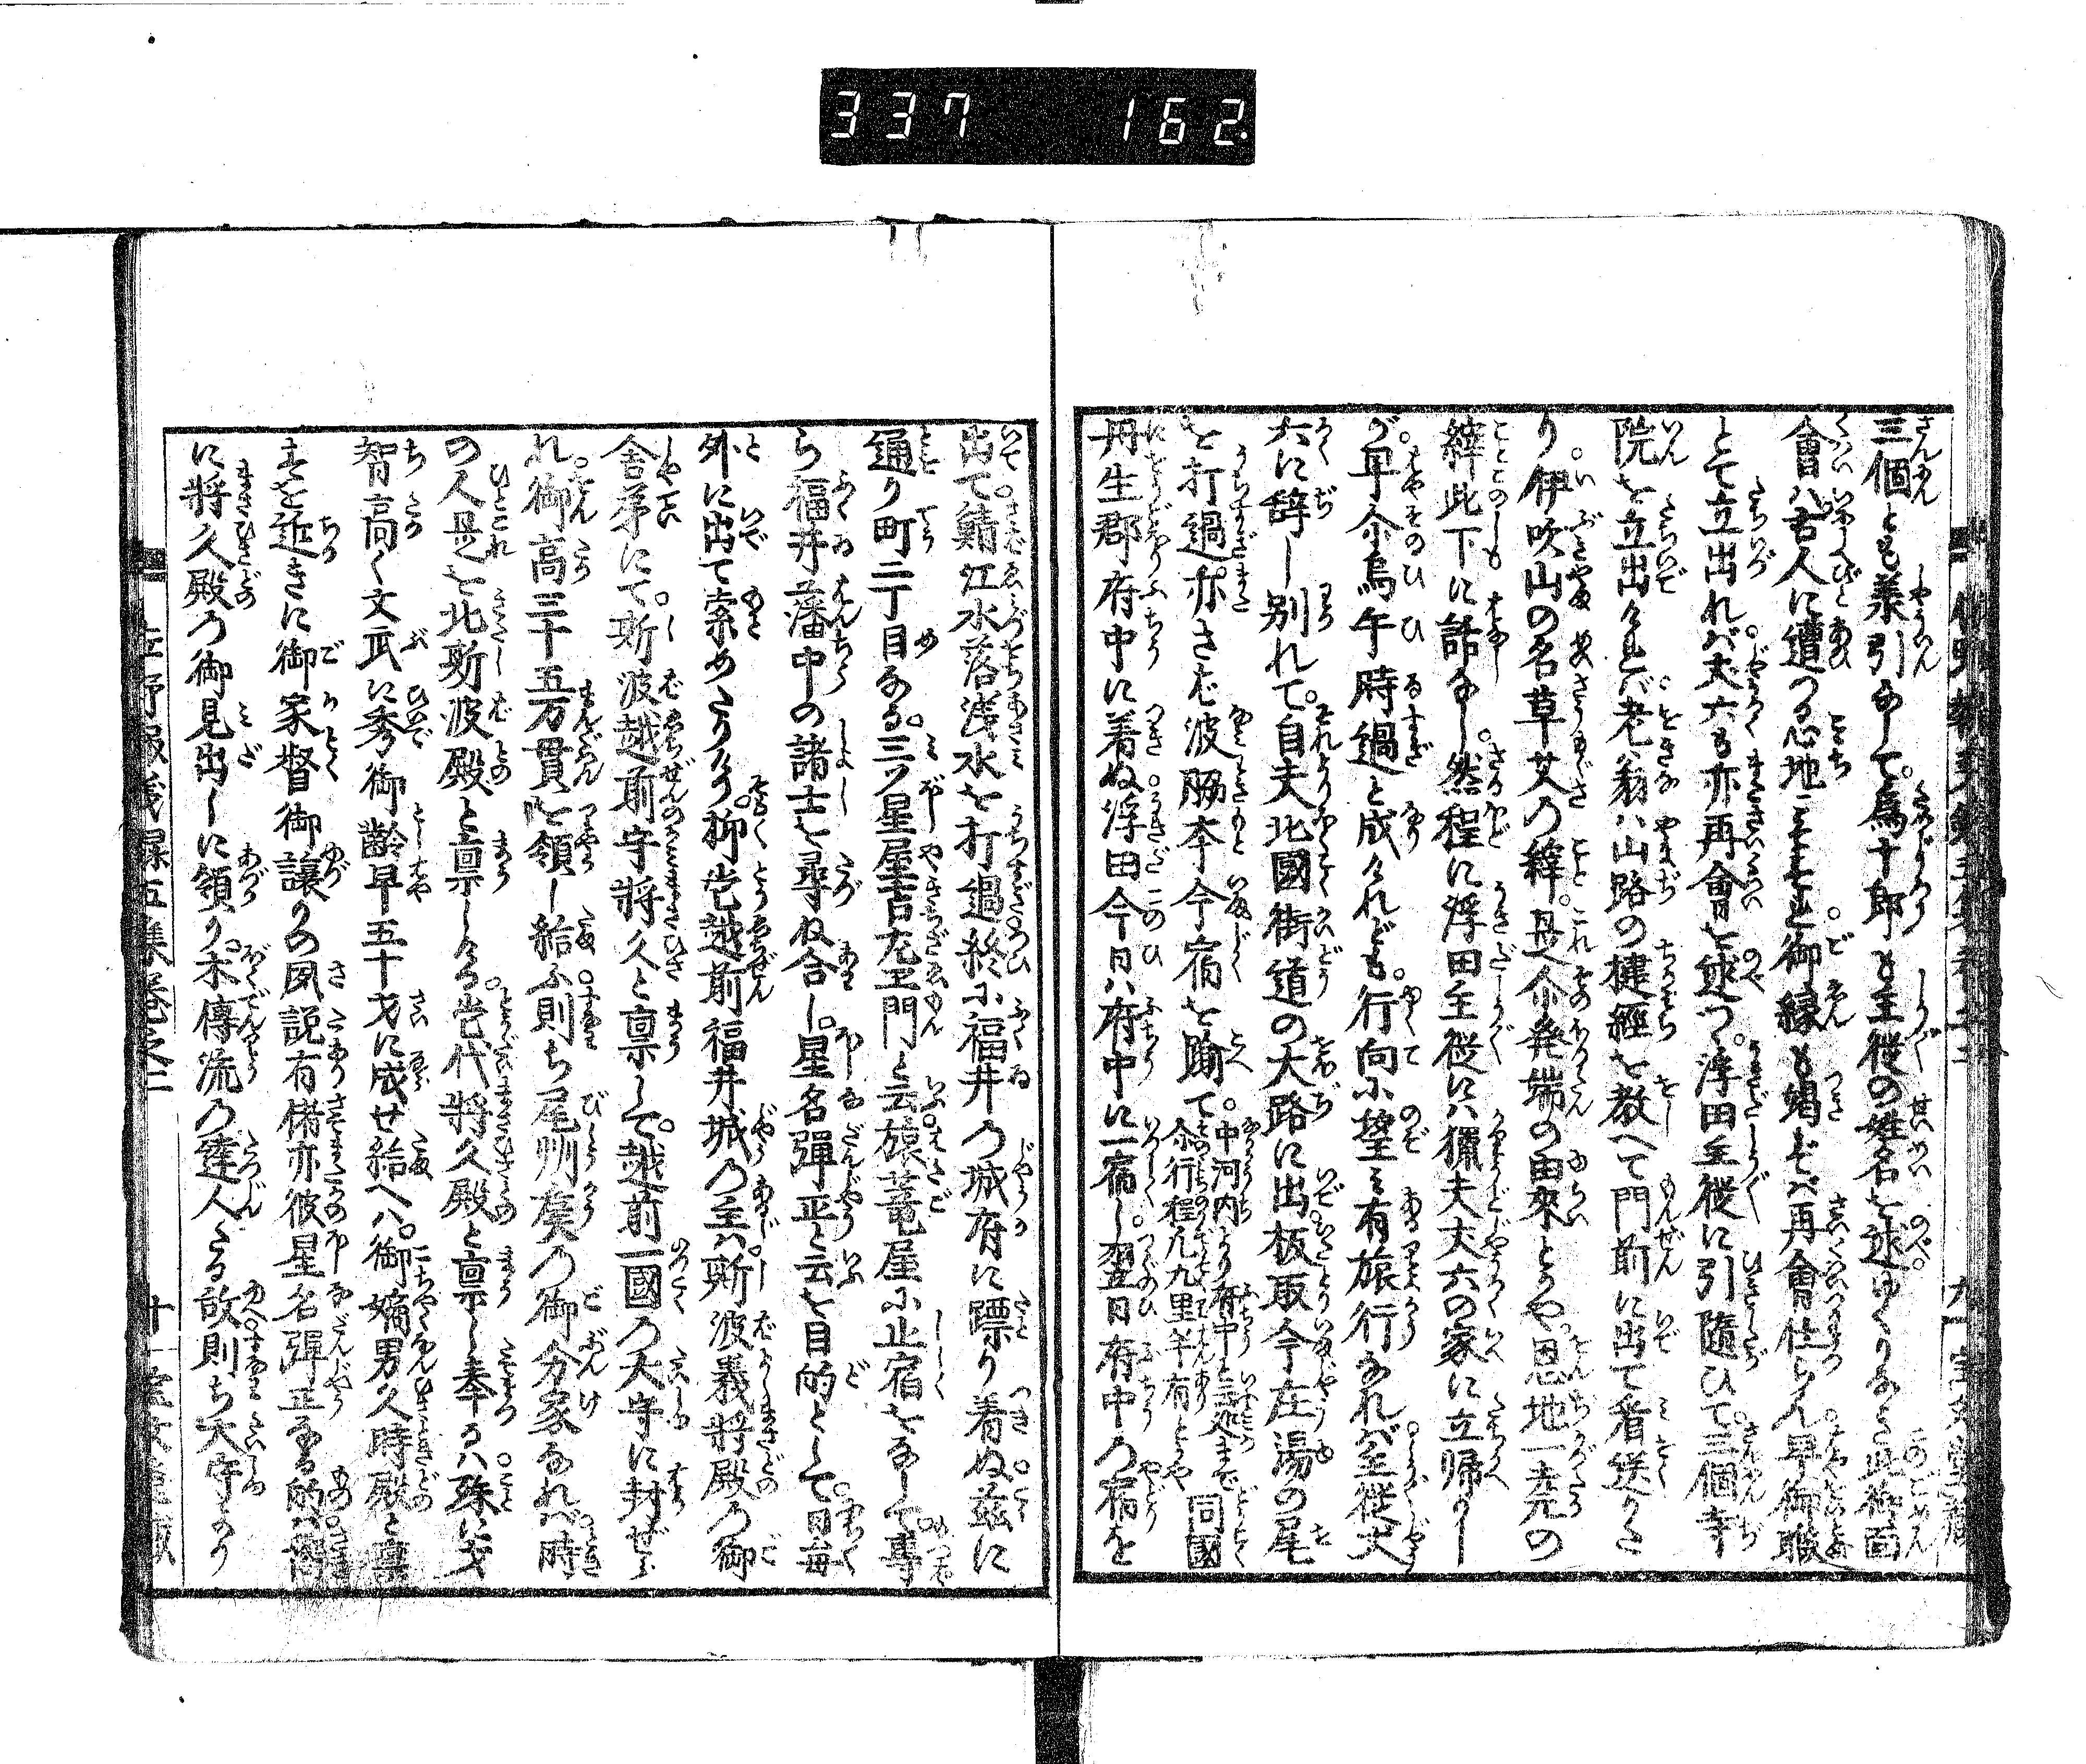 337 162
三個とも業引なして。為十郎も主從の姓名を述ゆくりなき此御面
會ハ古人に遭つる心地こそすれ御縁も竭ずバ再會仕らん早御暇
とて立出れバ丈六も亦再會を述つ。浮田主從に引隨ひて三個寺
院を立出けれバ老翁ハ山路の捷經を教へて門前に出て看送りた
り伊吹山の名草艾の縡。是介発端の由來とかや。恩地一九の
縡此下に話なし。然程に浮田主從ハ獵夫丈六の家に立帰りし
が早介烏午時過と成けれども。行向に望ミ有旅行なれバ主從丈
六に辞し別れて。自夫北國街道の大路に出板取今庄湯の尾
を打過。亦さば波脇本今宿を踰て。中河内より府中と云処まで 同國
介行程凡九里半有とかや
丹生郡府中に着ぬ浮田今日ハ府中に一宿し。翌日府中の宿を
出て鯖江水落浅水を打過終に福井の城府に躔り着ぬ茲に
通り町二丁目なる。三ツ星屋吉左エ門と云旅篭屋に止宿をなして専
ら福井藩中の諸士を尋ね合し。星名彈正と云を目的として。日毎
外に出て索めたりけり。抑当越前福井城の主ハ斯波義將殿の御
舎弟にて。斯波越前守將久と稟して。越前一國の大守に封ぜら
れ御高三十五万貫を領し給ふ則ち尾州矦の御分家なれバ時
の人是を北斯波殿と稟しける。当代將久殿と稟し奉るハ殊に才
智高く文武に秀御齢早五十才に成せ給へハ。御嫡男久時殿と稟
すを近きに御家督御讓りの風説有偖亦彼星名彈正なる的ハ
に將久殿の御見出しに領り。木傳流の達人たる故則ち大守より